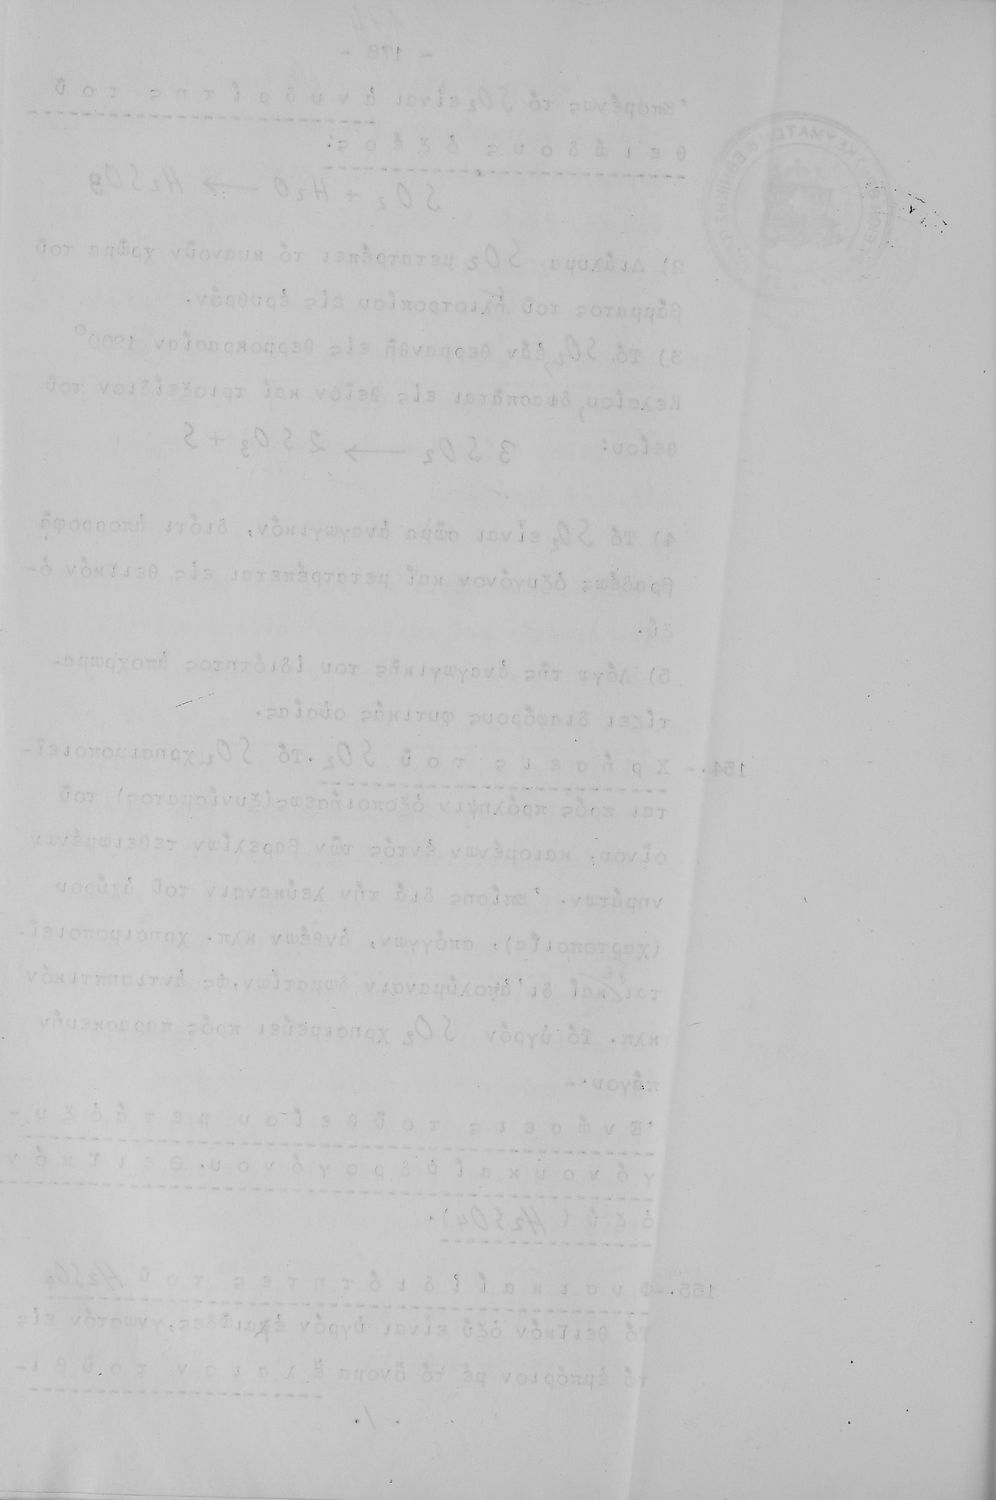 - 178 -
Ἑπομένως τό SO2 εἶναι ἀνυδρίτης τοῦ
θειώδους ὀξέος:
SO2 + H2O → H2SO3
2) Διάλυμα SO2 μετατρέπει τό κυανοῦν χρῶμα τοῦ
βάμματος τοῦ ἡλιοτροπίου εἰς ἐρυθρόν.
3) Τό SO2, ἐάν θερμανθῇ εἰς θερμοκρασίαν 1200°
Κελσίου, διασπᾶται εἰς θεῖον καί τριοξείδιον τοῦ
θείου:
3 SO2 → 2 SO3 + S
4) Τό SO2 εἶναι σῶμα ἀναγωγικόν, διότι ἀπορροφᾷ
βραδέως ὀξυγόνον καί μετατρέπεται εἰς θειϊκόν ὀ-
ξύ.
5) Λόγῳ τῆς ἀναγωγικῆς του ἰδιότητος ἀποχρωμα-
τίζει διαφόρους φυτικάς οὐσίας.
154.- Χρήσεις τοῦ SO2. Τό SO2 χρησιμοποιεῖ-
ται πρός πρόληψιν ὀξοποιήσεως(ξυνίσματος) τοῦ
οἴνου, καιομένων ἐντός τῶν βαρελίων τεθειωμένων
νημάτων. Ἐπίσης διά τήν λεύκανσιν τοῦ ἀχύρου
(χαρτοποιΐα), σπόγγων, ἀνθέων κλπ. χρησιμοποιεῖ-
ται καί δι' ἀπολύμανσιν δωματίων, ὡς ἀντισηπτικόν
κλπ. Τό ὑγρόν SO2 χρησιμεύει πρός παρασκευήν
πάγου.-
Ἑνώσεις τοῦ θείου μετά ὀξυ-
γόνου καί ὑδρογόνου. Θειϊκόν
ὀξύ (H2SO4).
155.- Φυσικαί ἰδιότητες τοῦ H2SO4
Τό θειϊκόν ὀξύ εἶναι ὑγρόν ἐλαιῶδες, γνωστόν εἰς
τό ἐμπόριον μέ τό ὄνομα ἔλαιον τοῦ θι-
./.